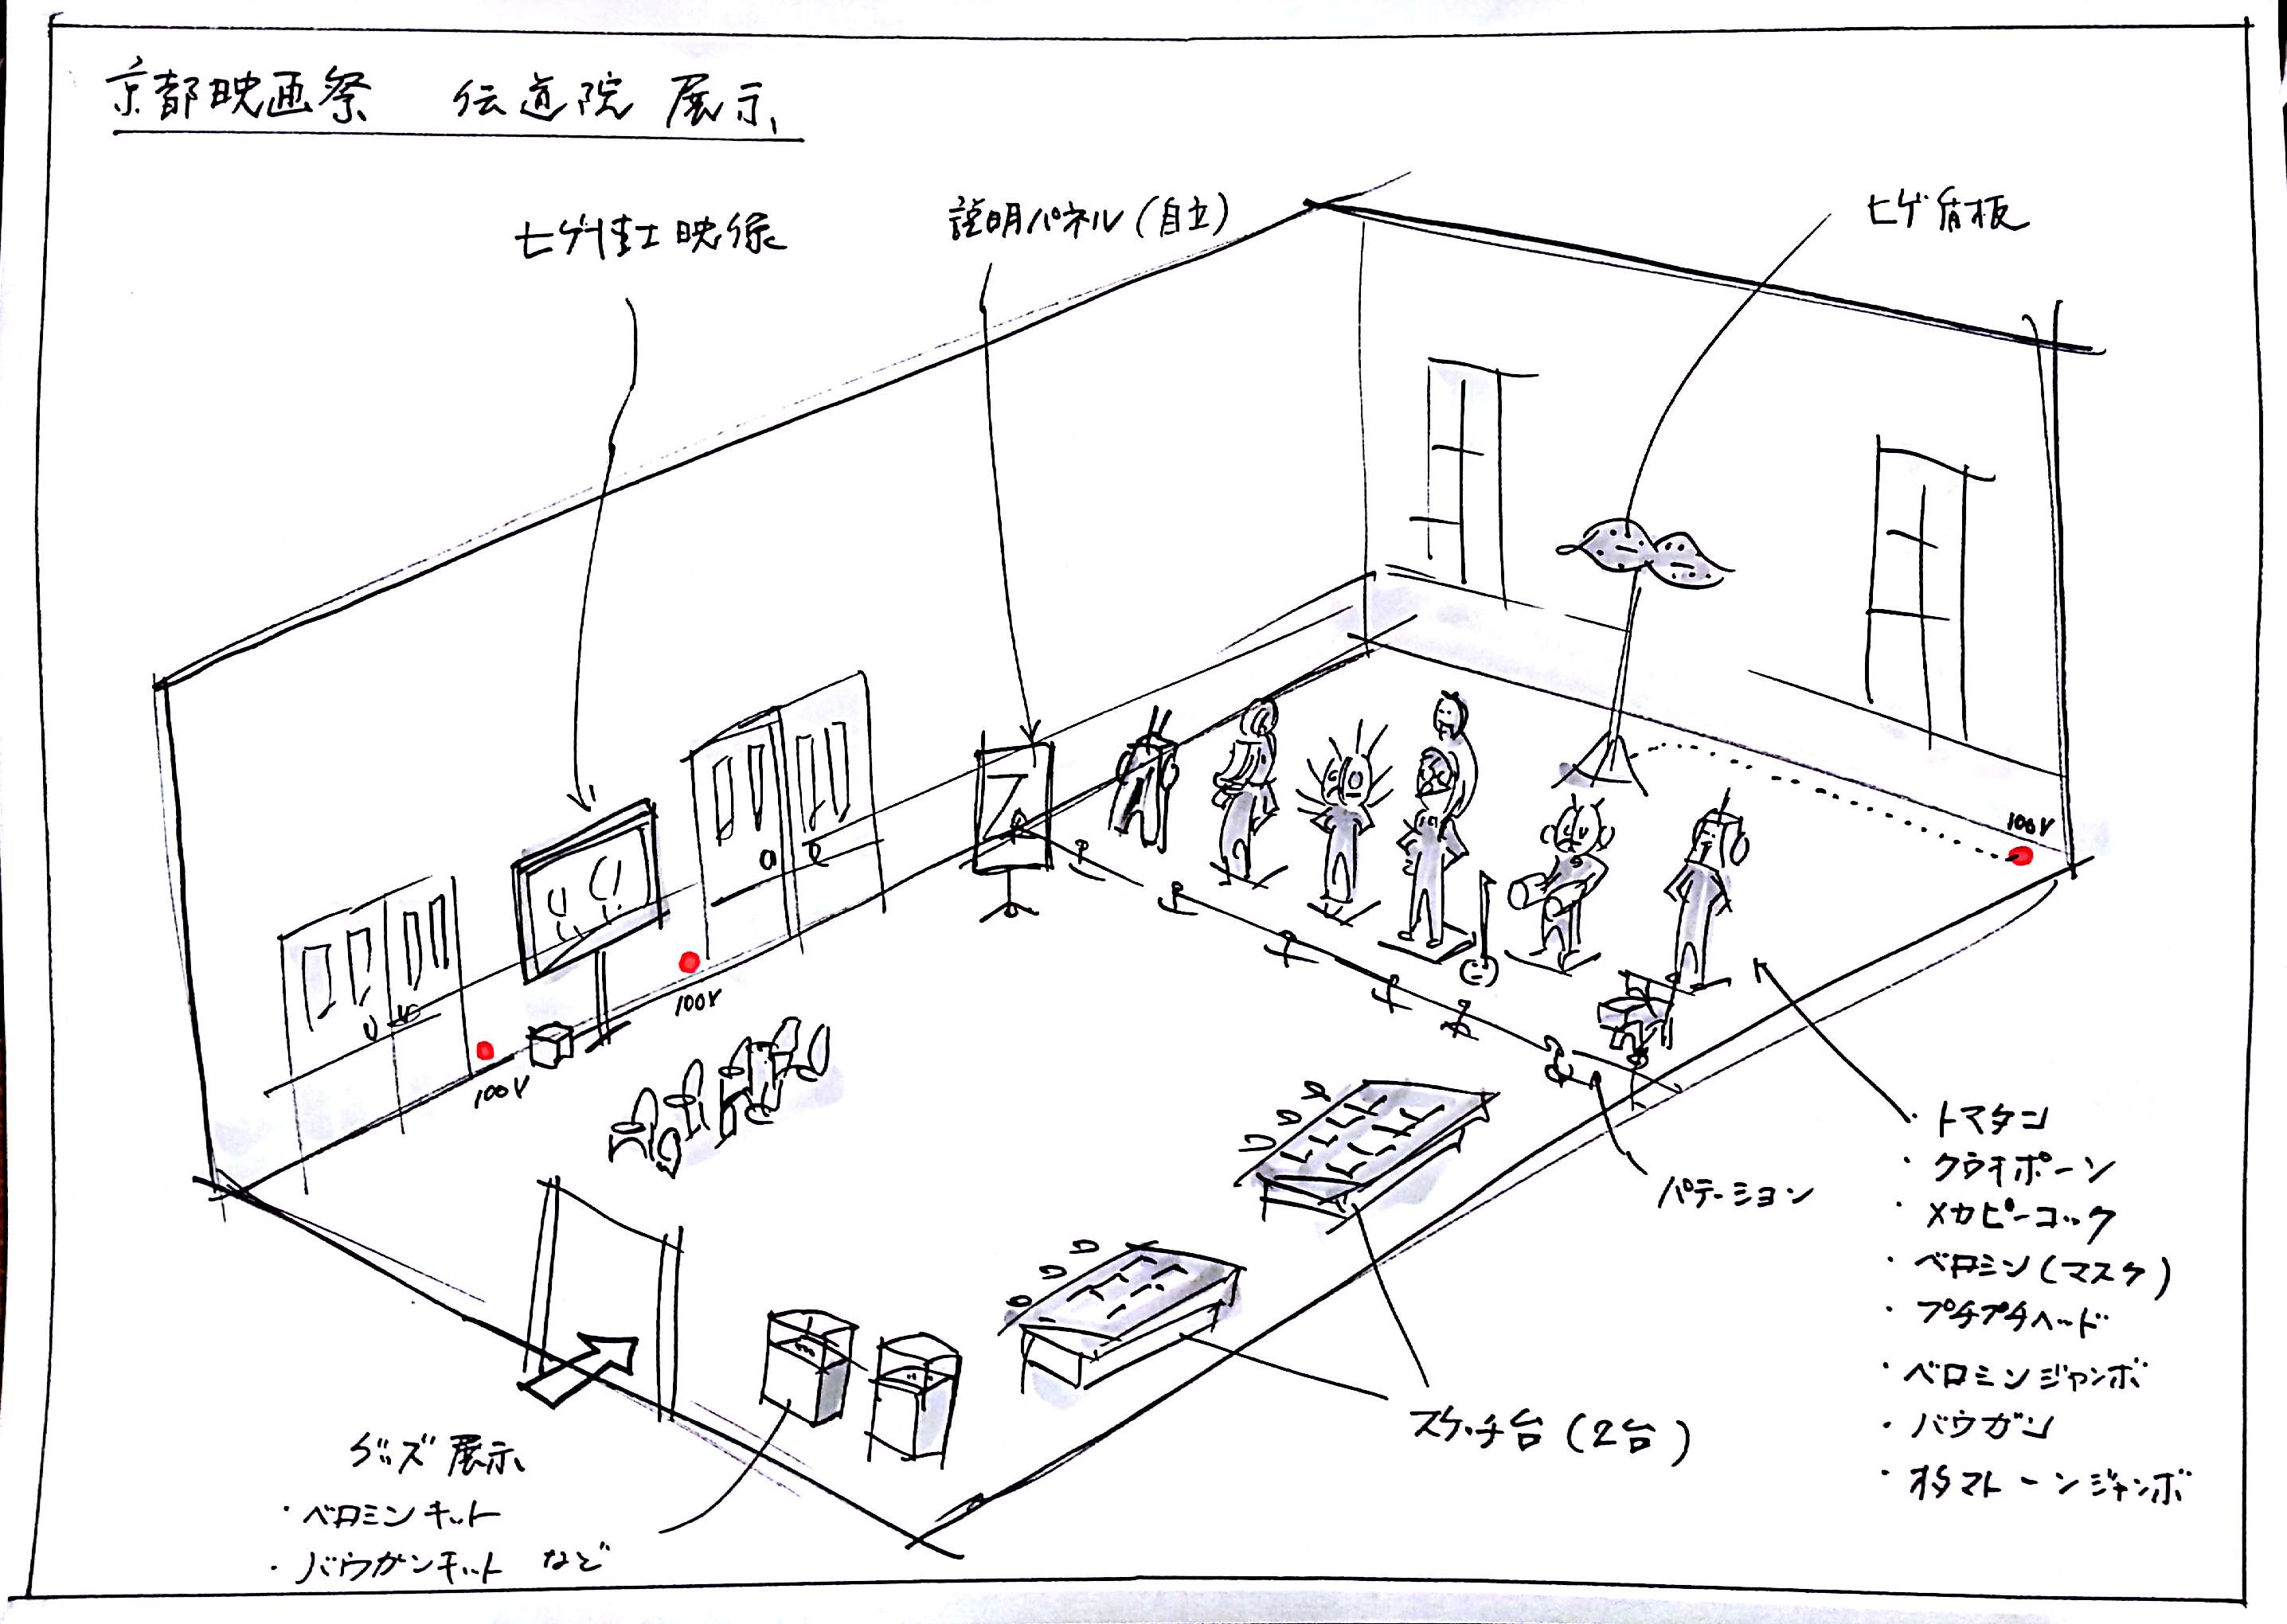 京都映画祭 伝道院 展示
ヒゲ博士映像
説明パネル(自立)
ヒゲ看板
100V
100V
100V
・トマタン
・クライホーン
・メカピーコック
・ベロミン(マスク)
・プチプチヘッド
・ベロミンジャンボ
・バウガン
・オタマトーンジャンボ
パテーション
スケッチ台(2台)
グッズ展示
・ベロミンキット
・バウガンキット など